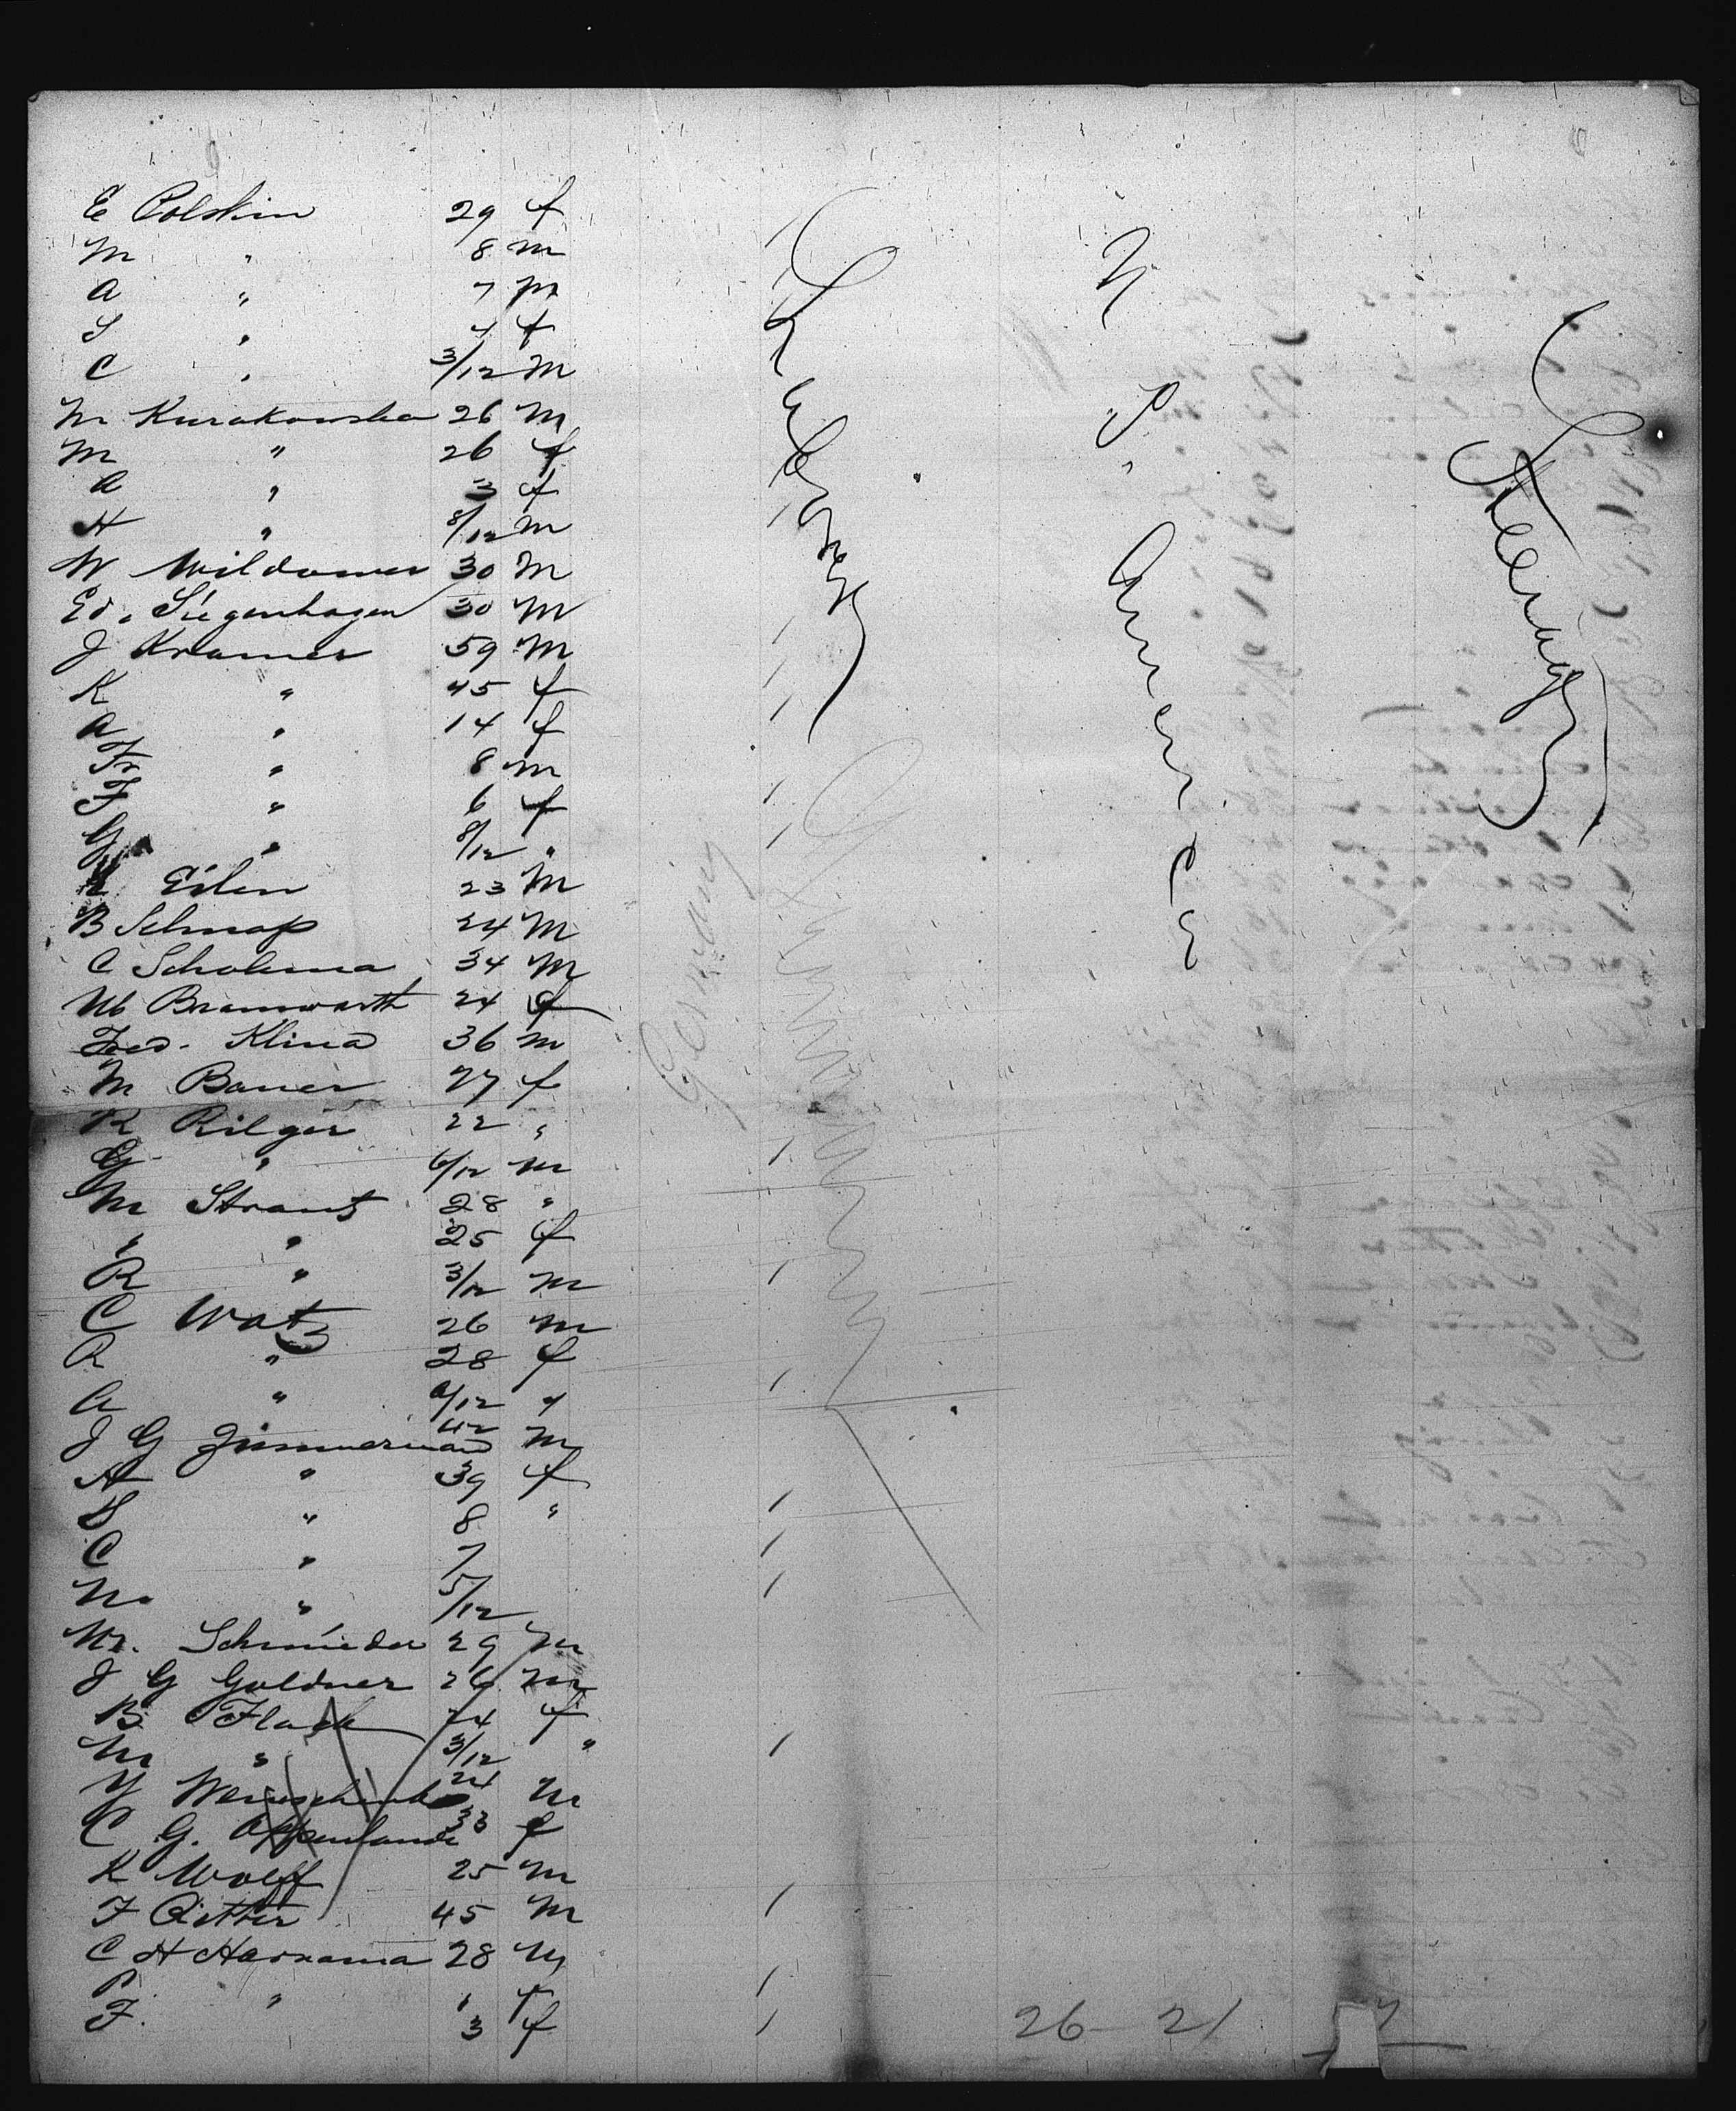 E Polskin 29 f
M " 8 m
A " 7 m
S " 4 f
C " 3/12 m
M Kurakowska 26 m
M " 26 f
A " 3 f
H " 8/12 m
W Wildower 30 m
Ed. Siegenhagen 30 m
J Kramer 59 m
K " 45 f
A " 14 f
Fr " 8 m
F " 6 f
G " 8/12 "
Eilen 23 m
B Schnap 24 m
C Scholema 34 m
Braunwarth 24 f
Fred. Klina 36 m
M Bauer 27 f
R Rilger 22 "
G " 6/12 m
M Straus 28 "
" " 25 f
R " 3/12 m
C Watz 26 m
R " 28 f
A " /12 "
J G Zimmermann 42 m
A " 39 f
S " 8 "
C " 7
M " 5/12
Wm. Schmieder 29 m
J G Goldner 26 m
B Flach 24 f
M " 3/12 "
Y 24 m
C G. Oppenlande 33 f
K Wolff 25 m
F Ritter 45 m
C H Harxama 28 m
P " " f
F. 3 f
Germany
Germany
(Laborer)
N. America
(Steerage)
26 21